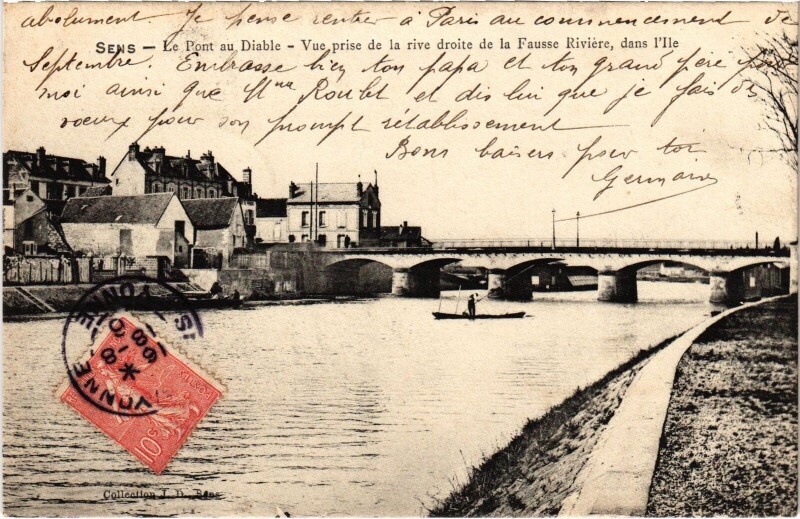 absolument. Je pense rentrer à Paris au commencement de
SENS — Le Pont au Diable - Vue prise de la rive droite de la Fausse Rivière, dans l'Ile
Septembre. Embrasse bien ton papa et ton grand père pour
moi ainsi que Mme Roulet et dis lui que je fais des
voeux pour son prompt rétablissement
Bons baisers pour toi
Germaine
SENS
YONNE
10c
Collection J. D., Sens